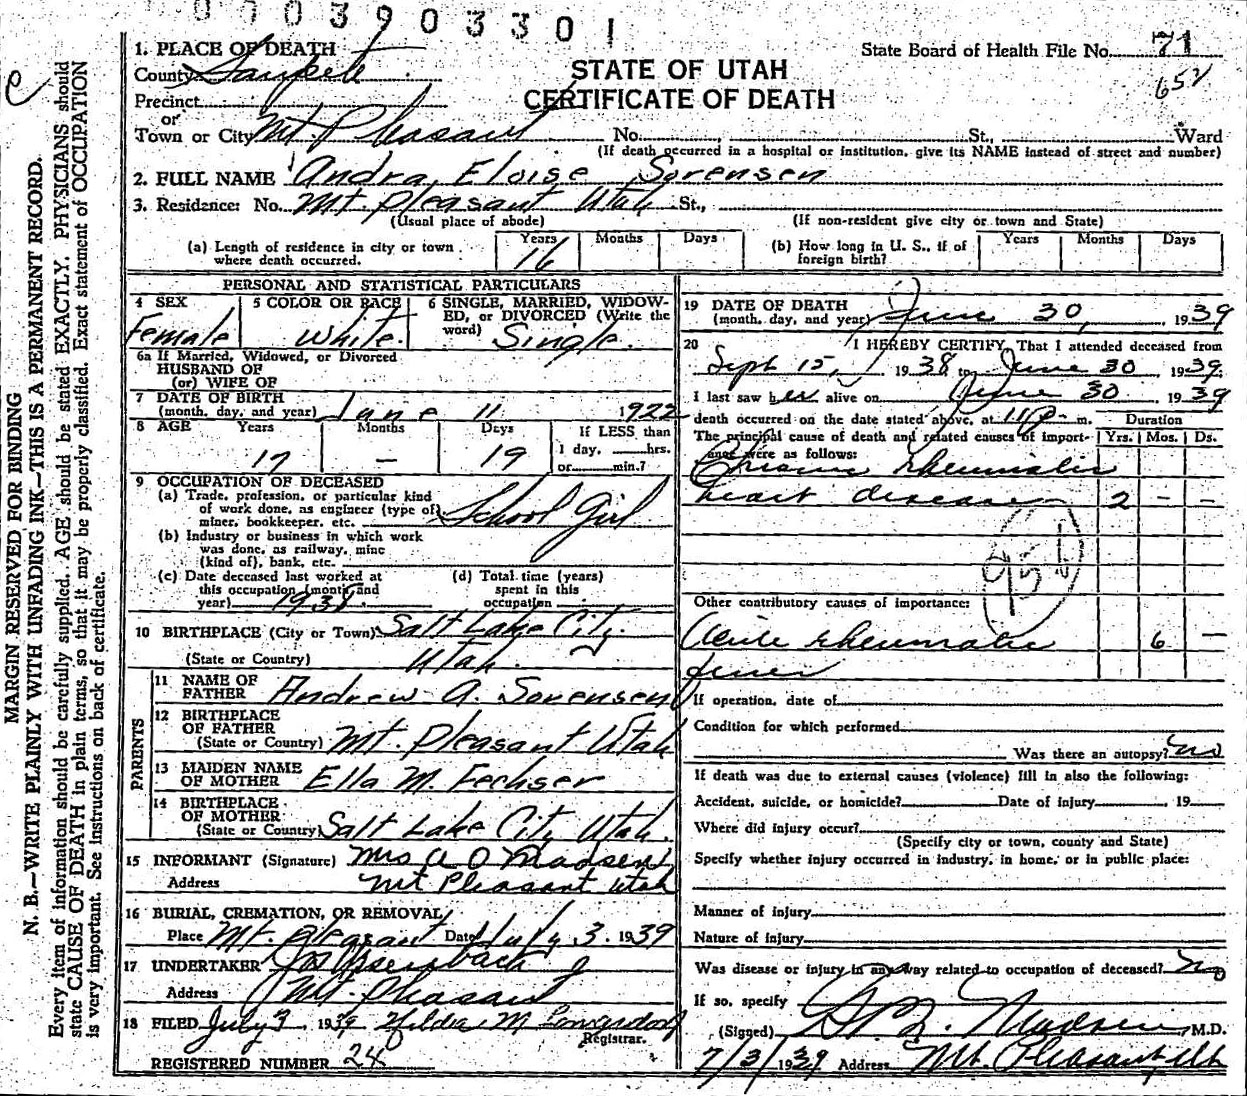 0003903301
1. PLACE OF DEATH
State Board of Health File No. 71
County Sanpete
STATE OF UTAH
652
Precinct
CERTIFICATE OF DEATH
or
Town or City Mt. Pleasant No. St., Ward
(If death occurred in a hospital or institution, give its NAME instead of street and number)
2. FULL NAME Andra Eloise Sorensen
3. Residence: No. Mt. Pleasant Utah St.,
(Usual place of abode) (If non-resident give city or town and State)
(a) Length of residence in city or town where death occurred. Years 16 Months Days
(b) How long in U. S., if of foreign birth? Years Months Days
PERSONAL AND STATISTICAL PARTICULARS
4 SEX Female
5 COLOR OR RACE White.
6 SINGLE, MARRIED, WIDOWED, or DIVORCED (Write the word) Single.
6a If Married, Widowed, or Divorced
HUSBAND OF
(or) WIFE OF
7 DATE OF BIRTH
(month, day, and year) June 11 1922
8 AGE Years Months Days If LESS than
17 - 19 1 day, hrs.
or min.?
9 OCCUPATION OF DECEASED
(a) Trade, profession, or particular kind
of work done, as engineer (type of)
miner, bookkeeper, etc. School Girl
(b) Industry or business in which work
was done, as railway, mine
(kind of), bank, etc.
(c) Date deceased last worked at
this occupation (month and
year) 1938.
(d) Total time (years)
spent in this
occupation
10 BIRTHPLACE (City or Town) Salt Lake City.
(State or Country) Utah.
PARENTS
11 NAME OF
FATHER Andrew A. Sorensen
12 BIRTHPLACE
OF FATHER
(State or Country) Mt. Pleasant Utah
13 MAIDEN NAME
OF MOTHER Ella M. Fechser
14 BIRTHPLACE
OF MOTHER
(State or Country) Salt Lake City Utah.
15 INFORMANT (Signature) Mrs A O Madsen
Address Mt Pleasant Utah
16 BURIAL, CREMATION, OR REMOVAL
Place Mt. Pleasant Date July 3. 1939
17 UNDERTAKER
Address Mt. Pleasant
18 FILED July 3 1939 Hilda M
Registrar.
REGISTERED NUMBER 24
19 DATE OF DEATH
(month, day, and year) June 30, 1939
20 I HEREBY CERTIFY, That I attended deceased from
Sept 15, 1938 to June 30 1939.
I last saw her alive on June 30 1939
death occurred on the date stated above, at m.
The principal cause of death and related causes of importance were as follows:
Duration
Yrs. Mos. Ds.
Chronic rheumatic
heart disease 2 - -
95
Other contributory causes of importance:
Acute rheumatic 6 -
fever
If operation, date of
Condition for which performed
Was there an autopsy? no
If death was due to external causes (violence) fill in also the following:
Accident, suicide, or homicide? Date of injury , 19
Where did injury occur?
(Specify city or town, county and State)
Specify whether injury occurred in industry, in home, or in public place:
Manner of injury
Nature of injury
Was disease or injury in any way related to occupation of deceased? no
If so, specify
(Signed) Madsen, M.D.
7/3/1939 Address Mt. Pleasant, Utah
MARGIN RESERVED FOR BINDING
N. B.—WRITE PLAINLY WITH UNFADING INK—THIS IS A PERMANENT RECORD.
Every item of information should be carefully supplied. AGE should be stated EXACTLY. PHYSICIANS should
state CAUSE OF DEATH in plain terms, so that it may be properly classified. Exact statement of OCCUPATION
is very important. See instructions on back of certificate.